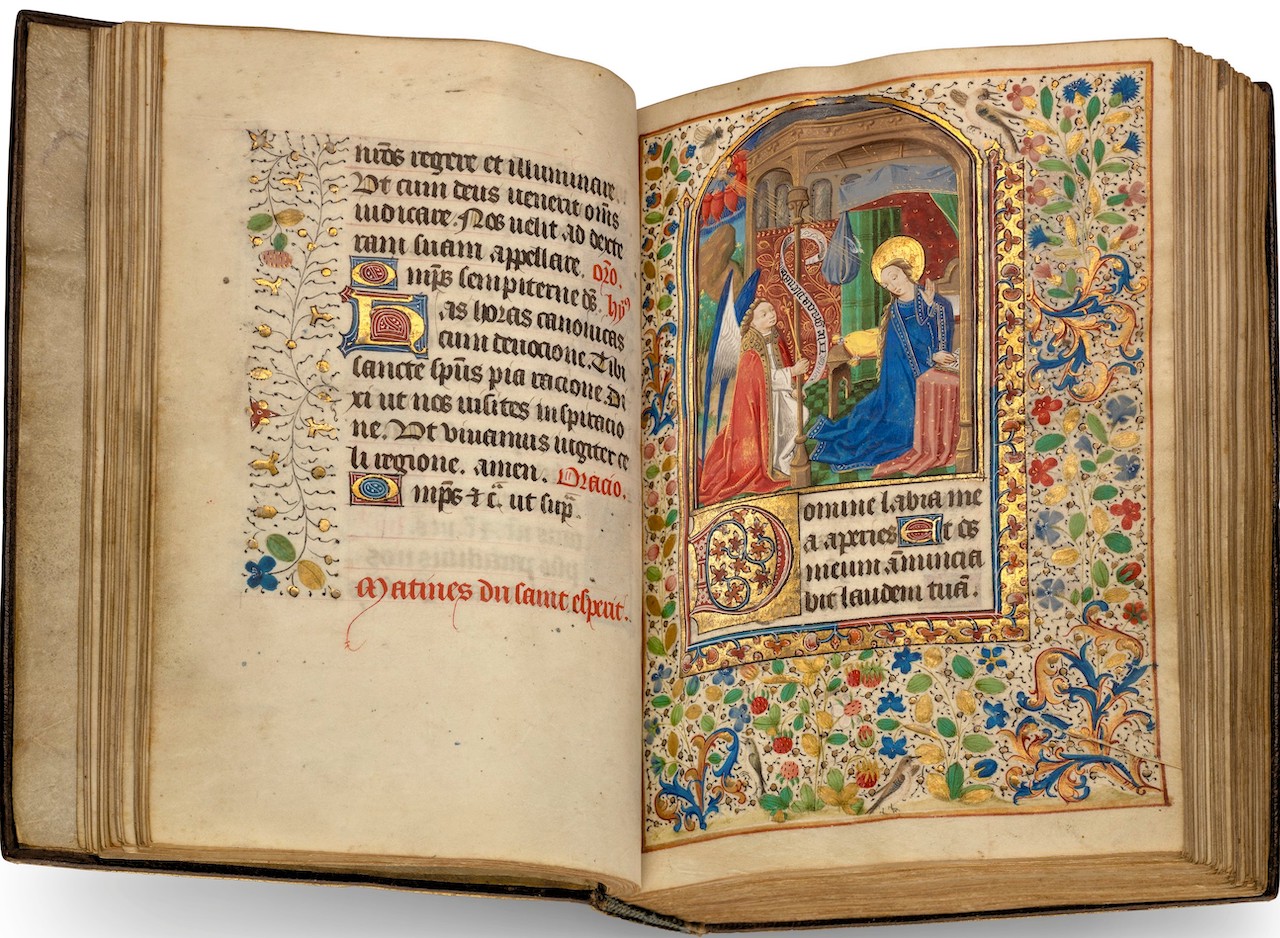 n̄ros regere et illuminare
Ut cum deus uenerit om̄s
iudicare. Nos uelit ad dexte
ram suam appellare. or̄o.
Omp̄s sempiterne ds̄. hy⁹
Has horas canonicas
cum deuocione. Tibi
sancte sp̄us pia racione Di
xi ut nos uisites inspiracio
ne. Ut viuamus iugiter ce
li regione. amen. Oracio.
Omp̄s ⁊ c̄. ut sup̄.
Matines du saint esperit.
Aue gracia plena
Domine labia me
a aperies Et os
meum an̄uncia
bit laudem tuā.